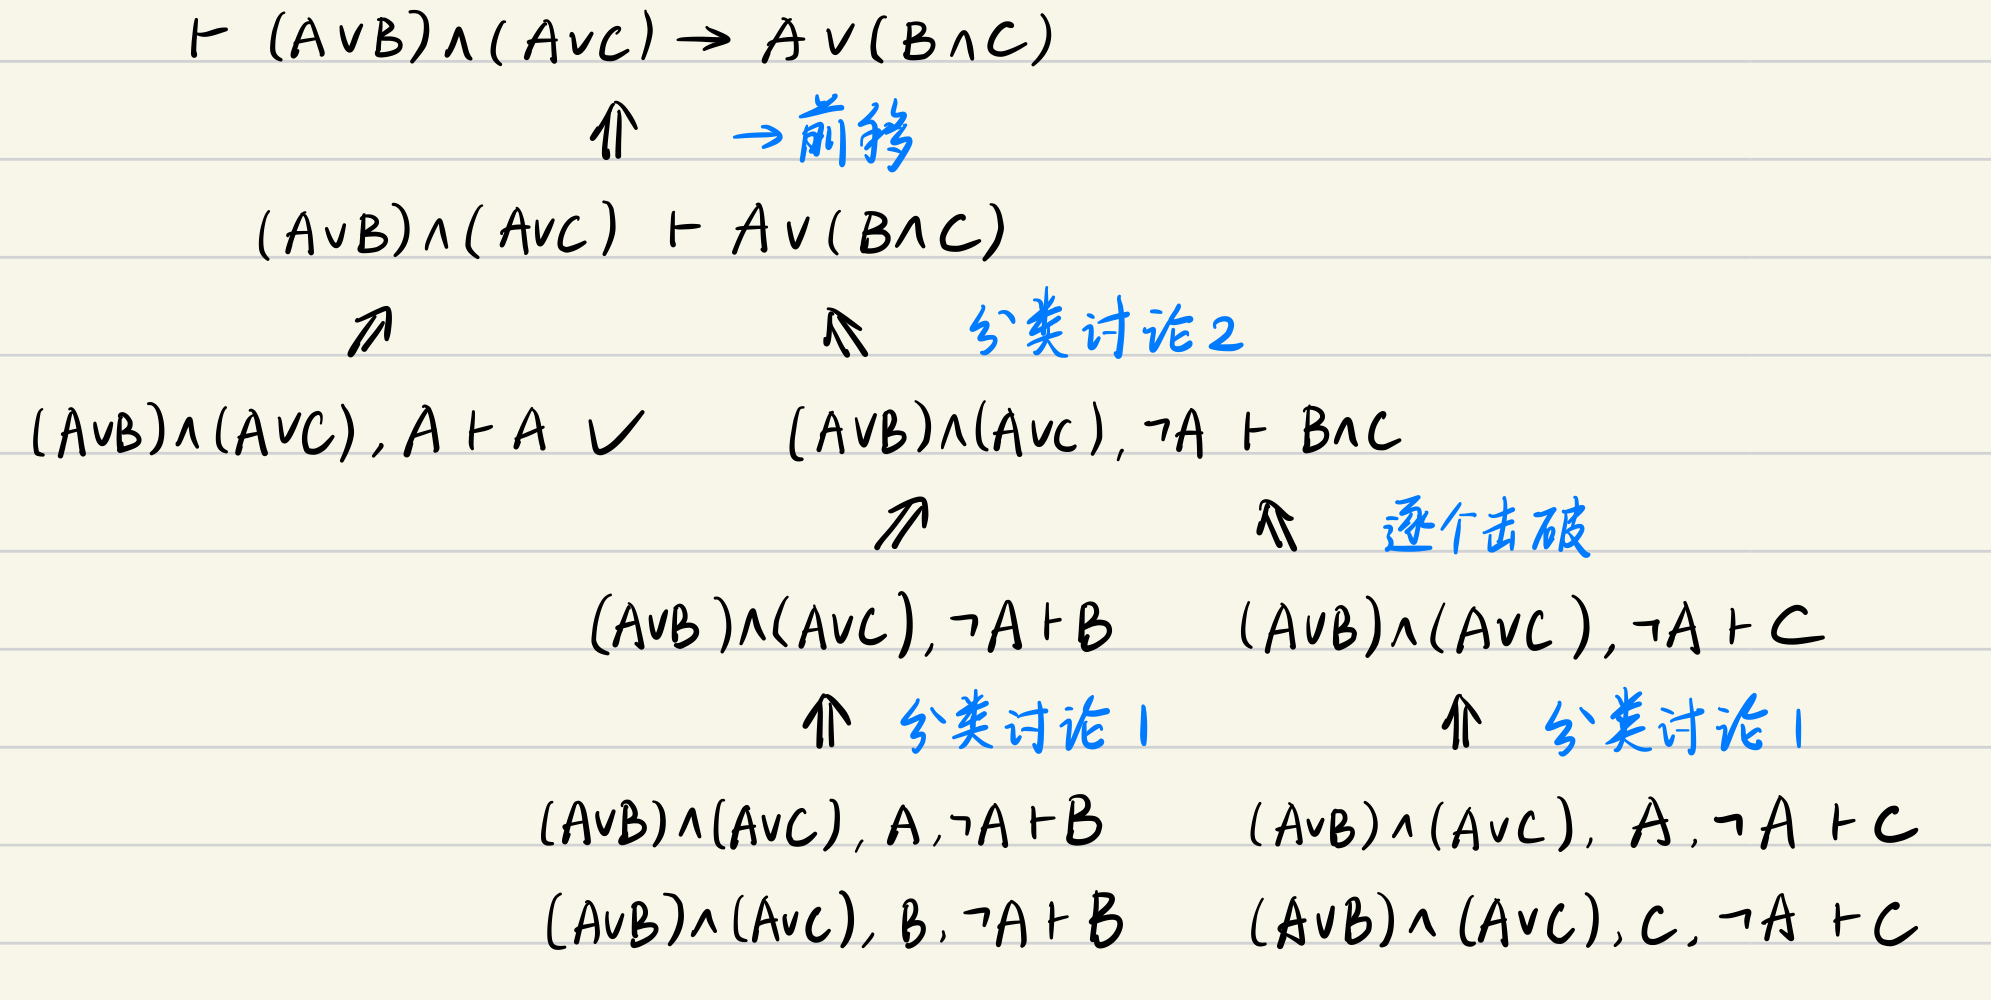 ⊢ (A∨B)∧(A∨C) → A∨(B∧C)
⇑ →前移
(A∨B)∧(A∨C) ⊢ A∨(B∧C)
⇗ ⇖ 分类讨论2
(A∨B)∧(A∨C), A ⊢ A ✓ (A∨B)∧(A∨C), ¬A ⊢ B∧C
⇗ ⇖ 逐个击破
(A∨B)∧(A∨C), ¬A ⊢ B (A∨B)∧(A∨C), ¬A ⊢ C
⇑ 分类讨论1 ⇑ 分类讨论1
(A∨B)∧(A∨C), A, ¬A ⊢ B (A∨B)∧(A∨C), A, ¬A ⊢ C
(A∨B)∧(A∨C), B, ¬A ⊢ B (A∨B)∧(A∨C), C, ¬A ⊢ C